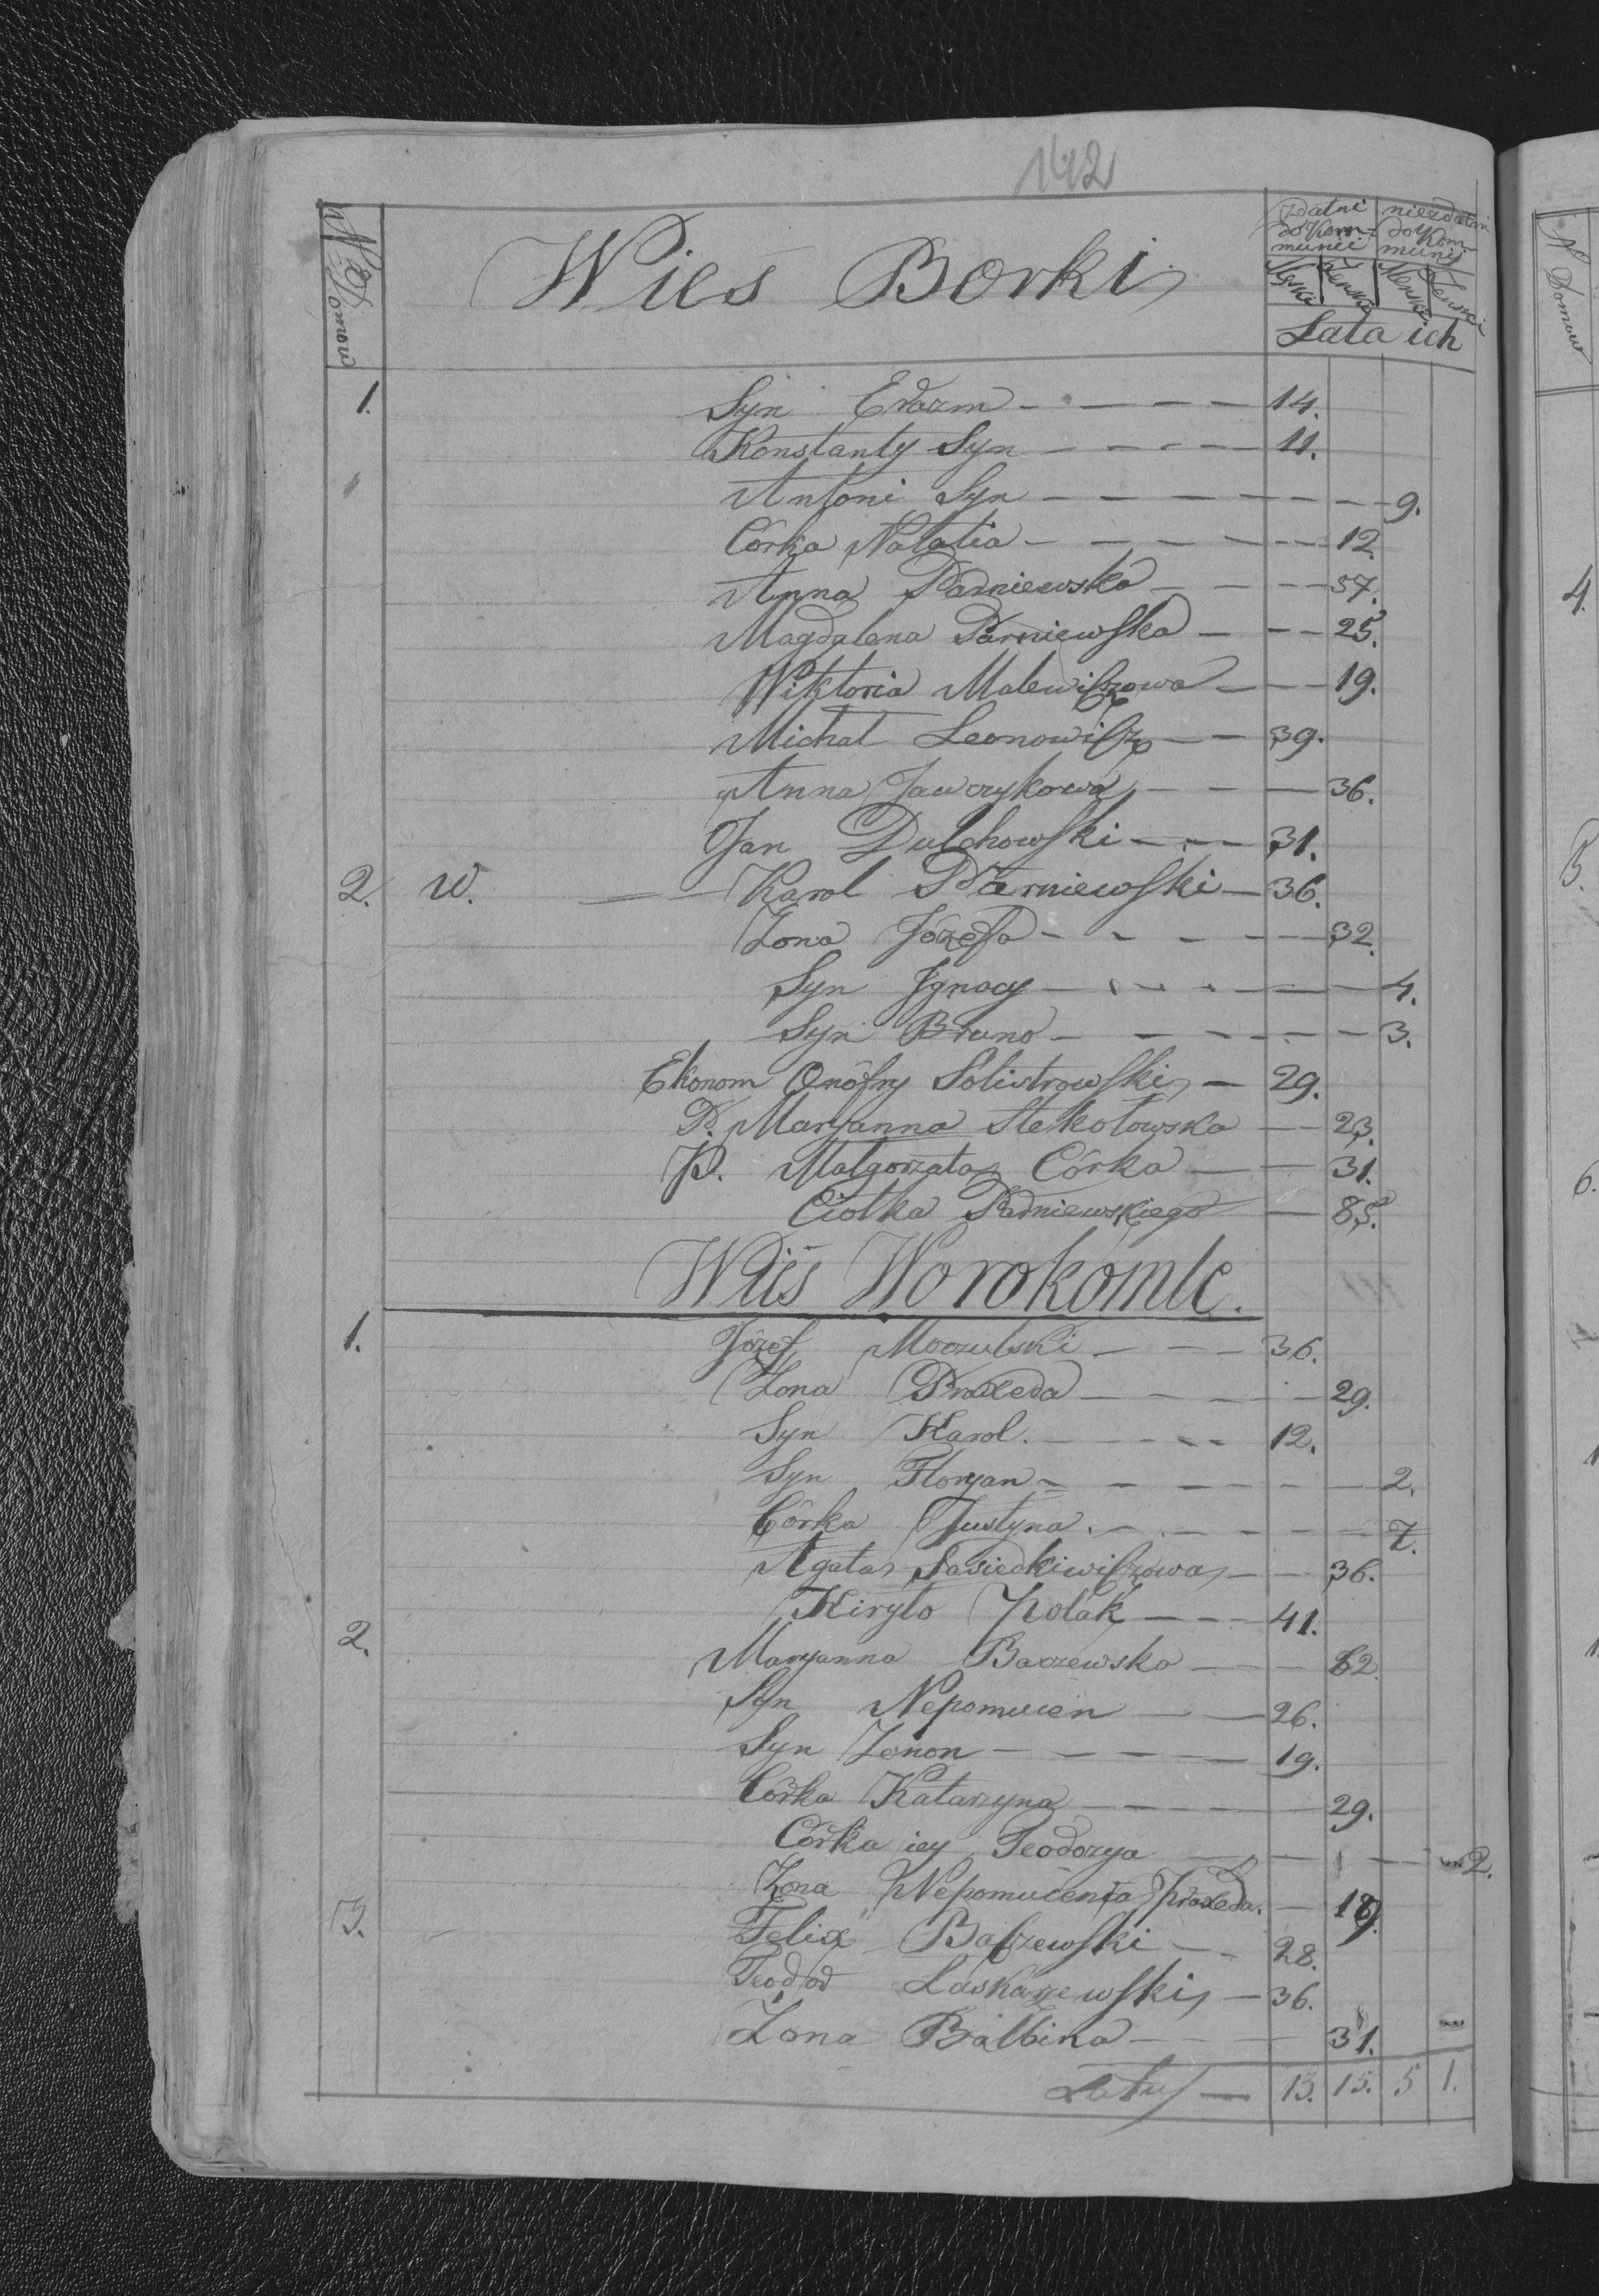 142
N Domow
Wieś Borki
zdatni do Kommunii
niezdatni do Kommunij
Męski Żeński Męski Żeński
Lata ich
1. Syn Erazm - - - - 14.
Konstanty Syn - - - - 11.
Antoni Syn - - - - - - 9.
Córka Natalia - - - - - 12.
Anna Parniewska - - - 57.
Magdalena Parniewska - - - 25.
Wiktoria Malewiczowa - - 19.
Michał Leonowicz - - 39.
Anna Jawczykowa - - - 36.
Jan Dulchowski - - - 31.
2. W. Karol Parniewski - 36.
Żona Józefa - - - - - 32.
Syn Ignacy - - - - - - 4.
Syn Bruno - - - - - - 3.
Ekonom Onófry Solistrowski - 29.
P. Maryanna Stekołowska - 23.
P. Małgorzata Córka - - 31.
Ciotka Parniewskiego - 85.
Wiéś Worokomle.
1. Józef Moczulski - - - 36.
Żona Praxeda - - - - 29.
Syn Karol. - - - - 12.
Syn Floryan - - - - - - 2.
Córka Justyna. - - - - - - 7.
Agata Sasiedkiewiczowa - - 36.
Kiryło Polak - - - 41.
2. Maryanna Baczewska - - 62.
Syn Nepomucen - - 26.
Syn Zenon - - - - 19.
Córka Katarzyna - - - - 29.
Córka iey Teodozya - - - - - 2.
Żona Nepomucena Praxeda. - 19.
3. Felix Baczewski - - 28.
Teodor Laskarzewski - 36.
Żona Balbina - - - 31.
Latus - 13. 15. 5 1.
N Domow
4.
5.
6.